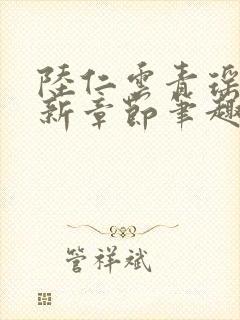 陸仁雲青瑶
新章節筆趣
管祥斌